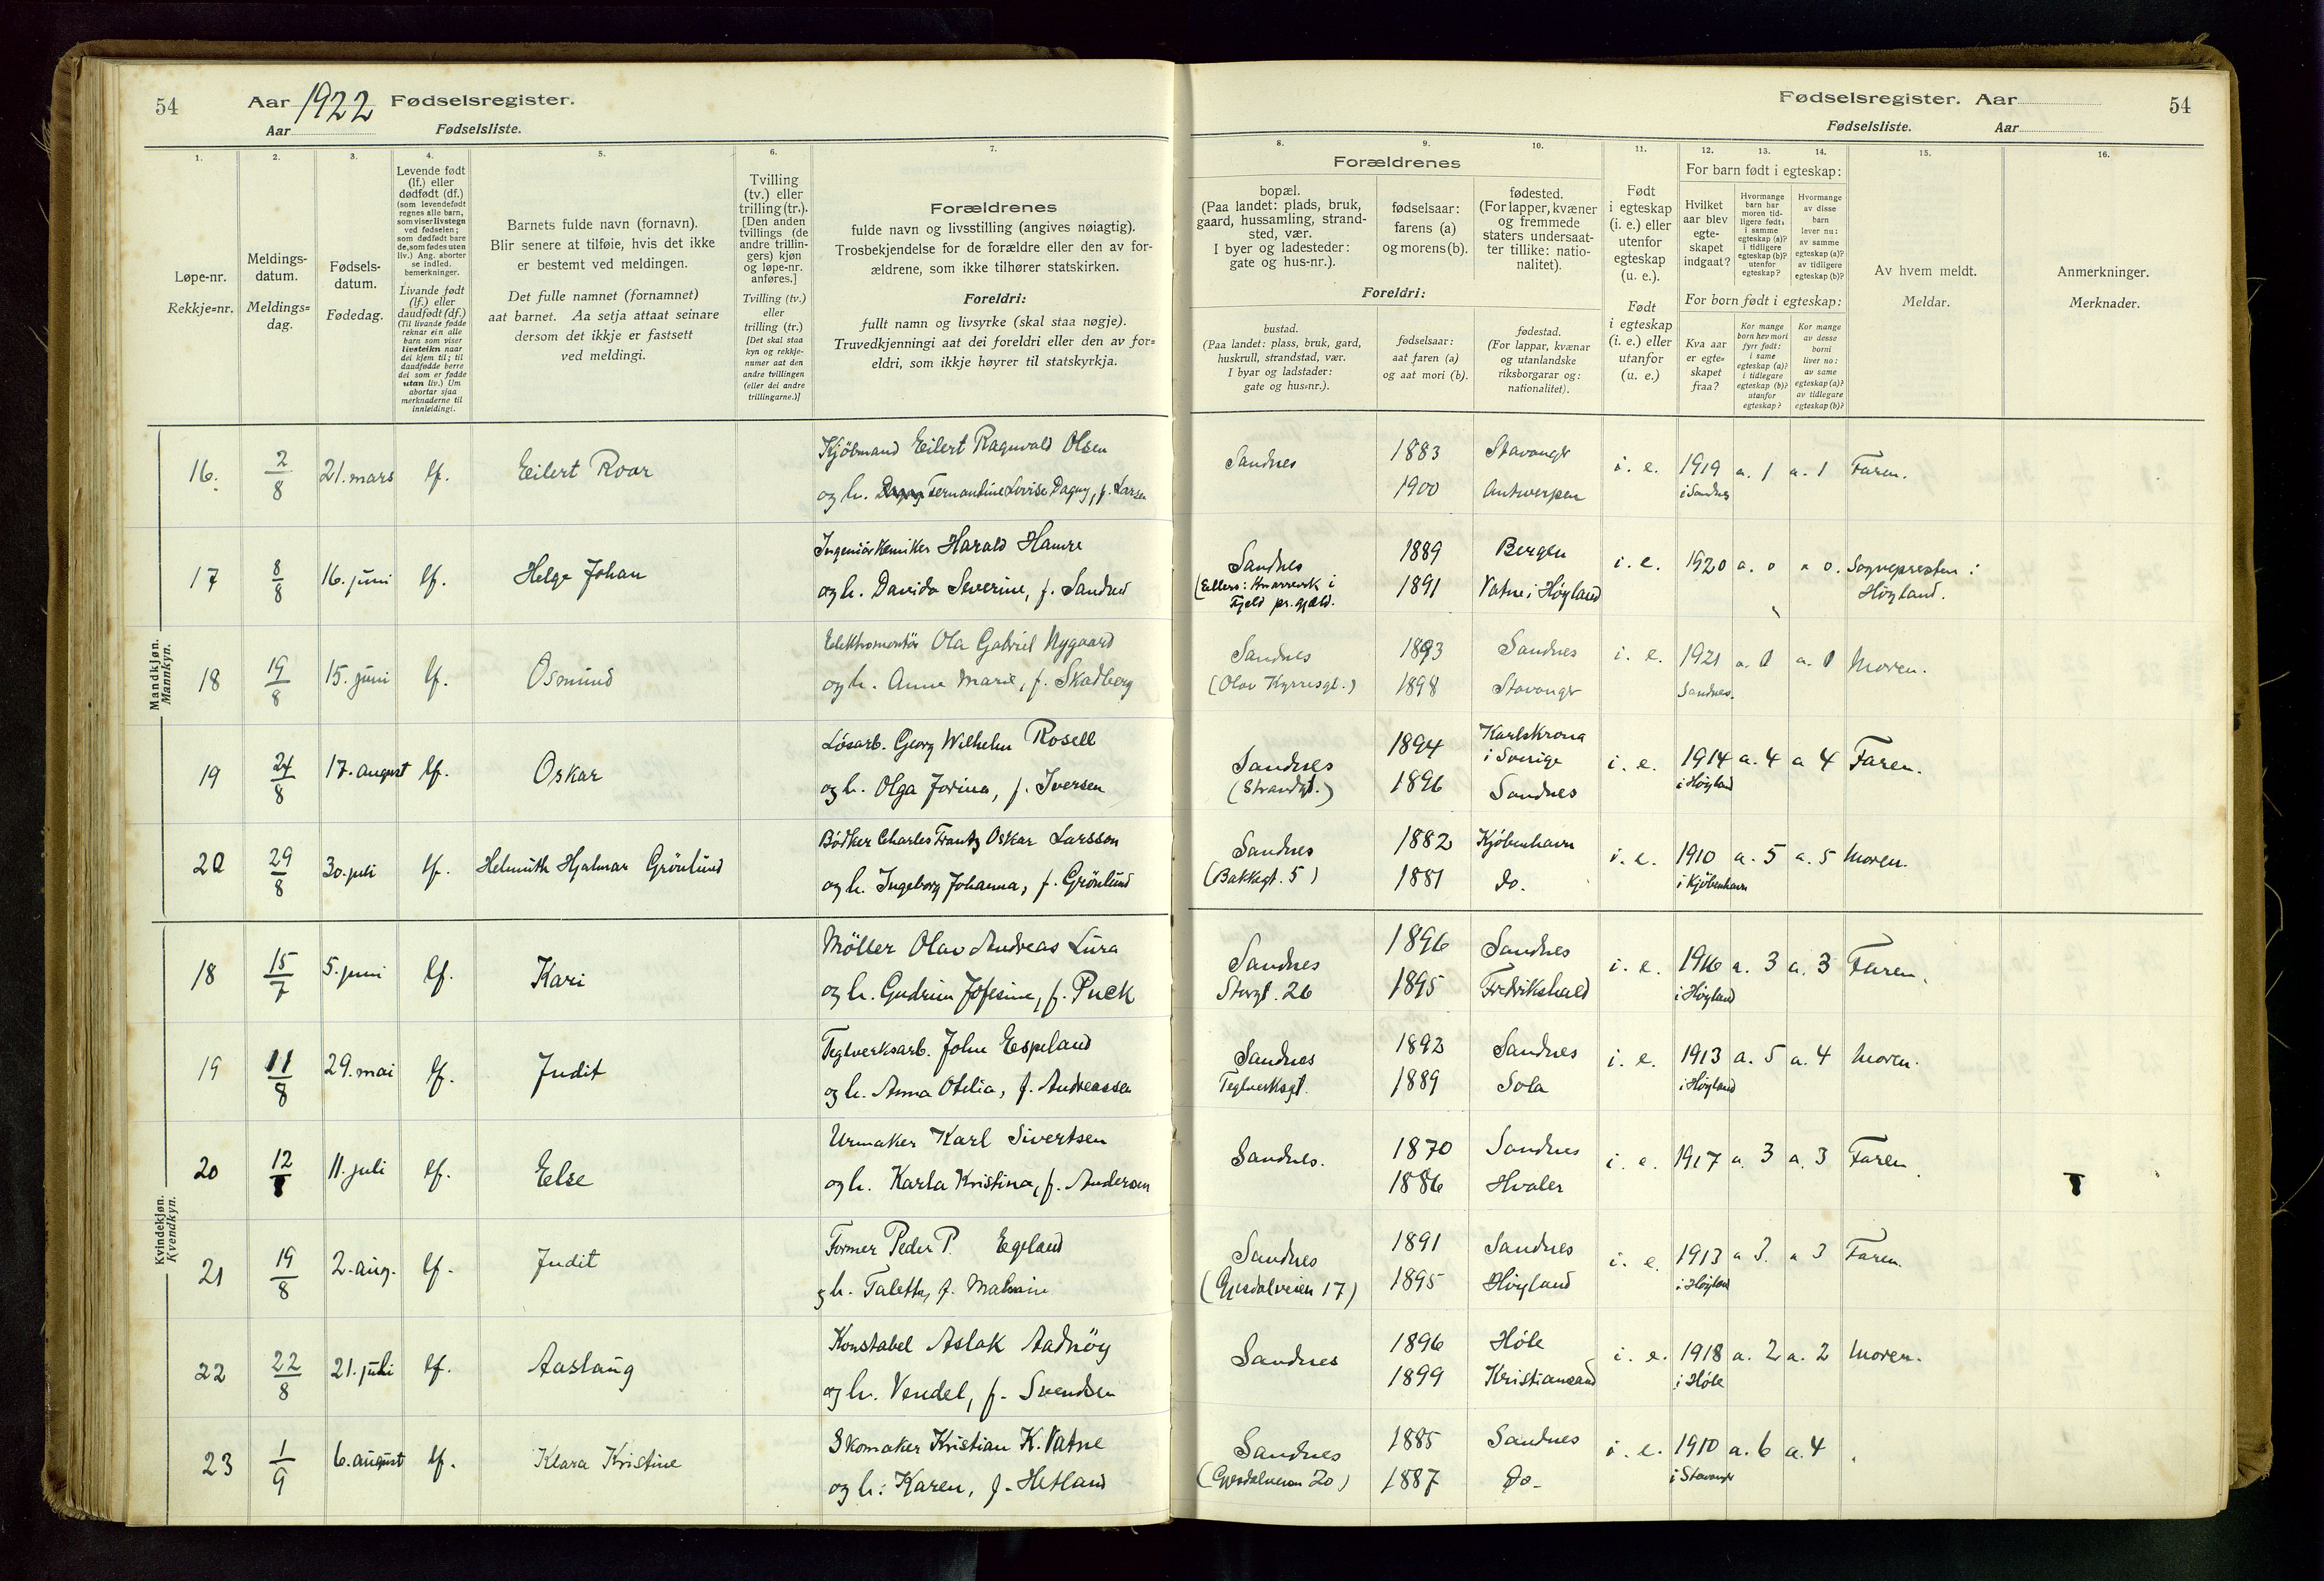 54 Aar 1922 Fødselsregister.
Aar Fødselsliste.
Fødselsregister. Aar 54
Fødselsliste. Aar
1. 2. 3. 4. 5. 6. 7. 8. 9. 10. 11. 12. 13. 14. 15. 16.
Løpe-nr.
Rekkje=nr.
Meldings-
datum.
Meldings=
dag.
Fødsels-
datum.
Fødedag.
Levende født
(lf.) eller
dødfødt (df.)
(som levendefødt
regnes alle barn,
som viser livstegn
ved fødselen;
som dødfødt bare
de, som fødes uten
liv.) Ang. aborter
se indled.
bemerkninger.
Livande født
(lf.) eller
daudfødt (df.)
(Til livande fødde
reknar ein alle
barn som viser
livsteikn naar
dei kjem til; til
daudfødde berre
dei som er fødde
utan liv.) Um
abortar sjaa
merknaderne til
innleidingi.
Barnets fulde navn (fornavn).
Blir senere at tilføie, hvis det ikke
er bestemt ved meldingen.
Det fulle namnet (fornamnet)
aat barnet. Aa setja attaat seinare
dersom det ikkje er fastsett
ved meldingi.
Tvilling
(tv.) eller
trilling (tr.).
[Den anden
tvillings (de
andre trillin-
gers) kjøn
og løpe-nr.
anføres.]
Tvilling (tv.)
eller
trilling (tr.)
[Det skal staa
kyn og rekkje-
numer aat den
andre tvillingen
(eller dei andre
trillingarne.)]
Forældrenes
fulde navn og livsstilling (angives nøiagtig).
Trosbekjendelse for de forældre eller den av for-
ældrene, som ikke tilhører statskirken.
Foreldri:
fullt namn og livsyrke (skal staa nøgje).
Truvedkjenningi aat dei foreldri eller den av for=
eldri, som ikkje høyrer til statskyrkja.
Forældrenes
bopæl.
(Paa landet: plads, bruk,
gaard, hussamling, strand-
sted, vær.
I byer og ladesteder:
gate og hus-nr.).
fødselsaar:
farens (a)
og morens (b).
fødested.
(For lapper, kvæner
og fremmede
staters undersaat-
ter tillike: natio-
nalitet).
Foreldri:
bustad.
(Paa landet: plass, bruk, gard,
huskrull, strandstad, vær.
I byar og ladstader:
gate og hus=nr.).
fødselsaar:
aat faren (a)
og aat mori (b).
fødestad.
(For lappar, kvænar
og utanlandske
riksborgarar og:
nationalitet).
Født
i egteskap
(i. e.) eller
utenfor
egteskap
(u. e.).
Født
i egteskap
(i. e.) eller
utanfor
(u. e.)
For barn født i egteskap:
Hvilket
aar blev
egte-
skapet
indgaat?
Hvormange
barn har
moren tid-
ligere født:
i samme
egteskap (a)?
i tidligere
egteskap (b)?
utenfor
egteskap?
Hvormange
av disse
barn
lever nu:
av samme
egteskap (a)?
av tidligere
egteskap (b)?
For born født i egteskap:
Kva aar
er egte-
skapet
fraa?
Kor mange
born hev mori
fyrr født:
i same
egteskap (a)?
i tidlegare
egteskap (b)?
utanfor
egteskap?
Kor mange
av desse
borni
liver no:
av same
egteskap (a)?
av tidlegare
egteskap (b)?
Av hvem meldt.
Meldar.
Anmerkninger.
Merknader.
Mandkjøn.
Mannkyn.
16. 2/8 21. mars lf. Eilert Roar Kjöbmand Eilert Ragnvald Olsen
og h. Fernandine Lovise Dagny, f. Larsen
Sandnes 1883 Stavanger i. e. 1919 a. 1 a. 1 Faren.
1900 Antwerpen i Sandnes
17 8/8 16. juni lf. Helge Johan Ingeniörkemiker Harald Hamre
og h. Davida Severine, f. Sandnes
Sandnes 1889 Bergen i. e. 1920 a. 0 a 0. Sognepresten i
1891 Vatne i Høyland Høyland.
Fjeld pr.gjeld.
18 19/8 15. juni lf. Osmund Elektromontör Ola Gabriel Nygaard
og h. Anne Marie, f. Skadberg
Sandnes 1893 Sandnes i. e. 1921 a. 0 a. 0 Moren.
(Olav Kyrresgt.) 1898 Stavanger Sandnes.
19 24/8 17. august lf. Oskar Løsarb. Georg Wilhelm Rosell
og h. Olga Jorina, f. Iversen
Sandnes 1894 Karlskrona i Sverige i. e. 1914 a. 4 a 4 Faren.
(Strandgt.) 1896 Sandnes i Høyland
20 29/8 30. juli lf. Helmuth Hjalmar Grönlund Bødker Charles Frantz Oskar Larsson
og h. Ingeborg Johanna, f. Grönlund
Sandnes 1882 Kjøbenhavn i. e. 1910 a. 5 a. 5 Moren.
(Bakkegt. 5) 1881 do. i Kjøbenhavn
Kvindekjøn.
Kvendkyn.
18 15/7 5. juni lf. Kari Möller Olav Andreas Lura
og h. Gudrun Josefine, f. Puck
Sandnes 1896 Sandnes i. e. 1916 a. 3 a. 3 Faren.
Storgt. 26 1895 Fredrikshald i Høyland
19 11/8 29. mai lf. Judit Teglverksarb. John Espeland
og h. Anna Otilia, f. Andreassen
Sandnes 1892 Sandnes i. e. 1913 a. 5 a. 4 Moren.
Teglverksgt. 1889 Sola i Høyland
20 12/8 11. juli lf. Else Urmaker Karl Sivertsen
og h. Karla Kristina, f. Andersen
Sandnes. 1870 Sandnes i. e. 1917 a. 3 a. 3 Faren.
1886 Hvaler
21 19/8 2. aug. lf. Judit Former Peder P. Egeland
og h. Taletta, f. Malmin
Sandnes 1891 Sandnes i. e. 1913 a 3. a 3 Faren.
(Gjesdalveien 17) 1895 Høyland i Høyland
22 22/8 21. juli lf. Aaslaug Konstabel Aslak Aadnöy
og h. Vendel, f. Svendsen
Sandnes 1896 Høle i. e. 1918 a. 2 a. 2 Moren.
1899 Kristiansand i Høle
23 1/9 6. august lf. Klara Kristine Skomaker Kristian K. Vatne
og h: Karen, f. Hetland
Sandnes 1885 Sandnes i. e. 1910 a. 6 a. 4
(Gjesdalveien 20) 1887 Do. i Stavanger